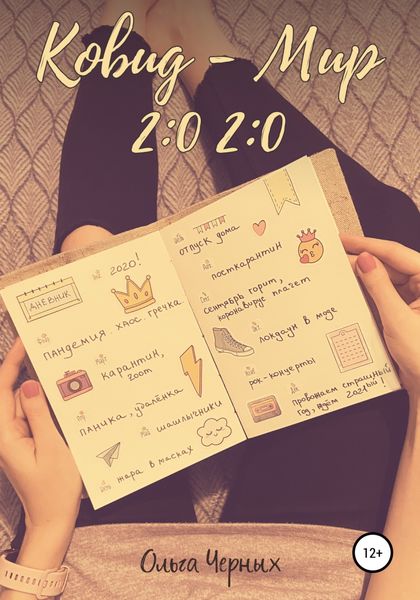 Ковид - Мир
2:0 2:0
2020!
ДНЕВНИК
пандемия хаос. гречка
карантин,
zoom
паника, удалёнка
шашлычники
жара в масках
отпуск дома
посткарантин
сентябрь горит,
коронавирус плачет
локдаун в моде
рок-концерты
провожаем страшный
год, ждём 2021!
Ольга Черных
12+